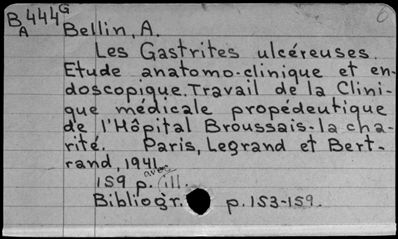 B 444 G
A
Bellin, A.
Les Gastrites ulcéreuses.
Etude anatomo-clinique et en-
doscopique. Travail de la Clini-
que médicale propédeutique
de l'Hôpital Broussais-la cha-
rité. Paris, Legrand et Bert-
rand, 1941.
avec
159 p. ill.
Bibliogr. p. 153-159.